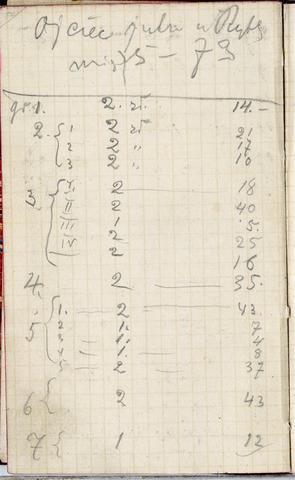 Ojciec jutro u Ryb
między 5 – 7 9
gr. 1. 2. zł. 14.–
2. { 1 2 zł 21
2 2 " 17
3 2 " 10
3 { I. 2 18
II 2 40
III 1 5.
IV 2 25
2 16
4. 2 35.
5 { 1. 2 43.
2 1. 7
3 1. 4
4 1. 8
5 2 37
6 { 2 43
7 { 1 12